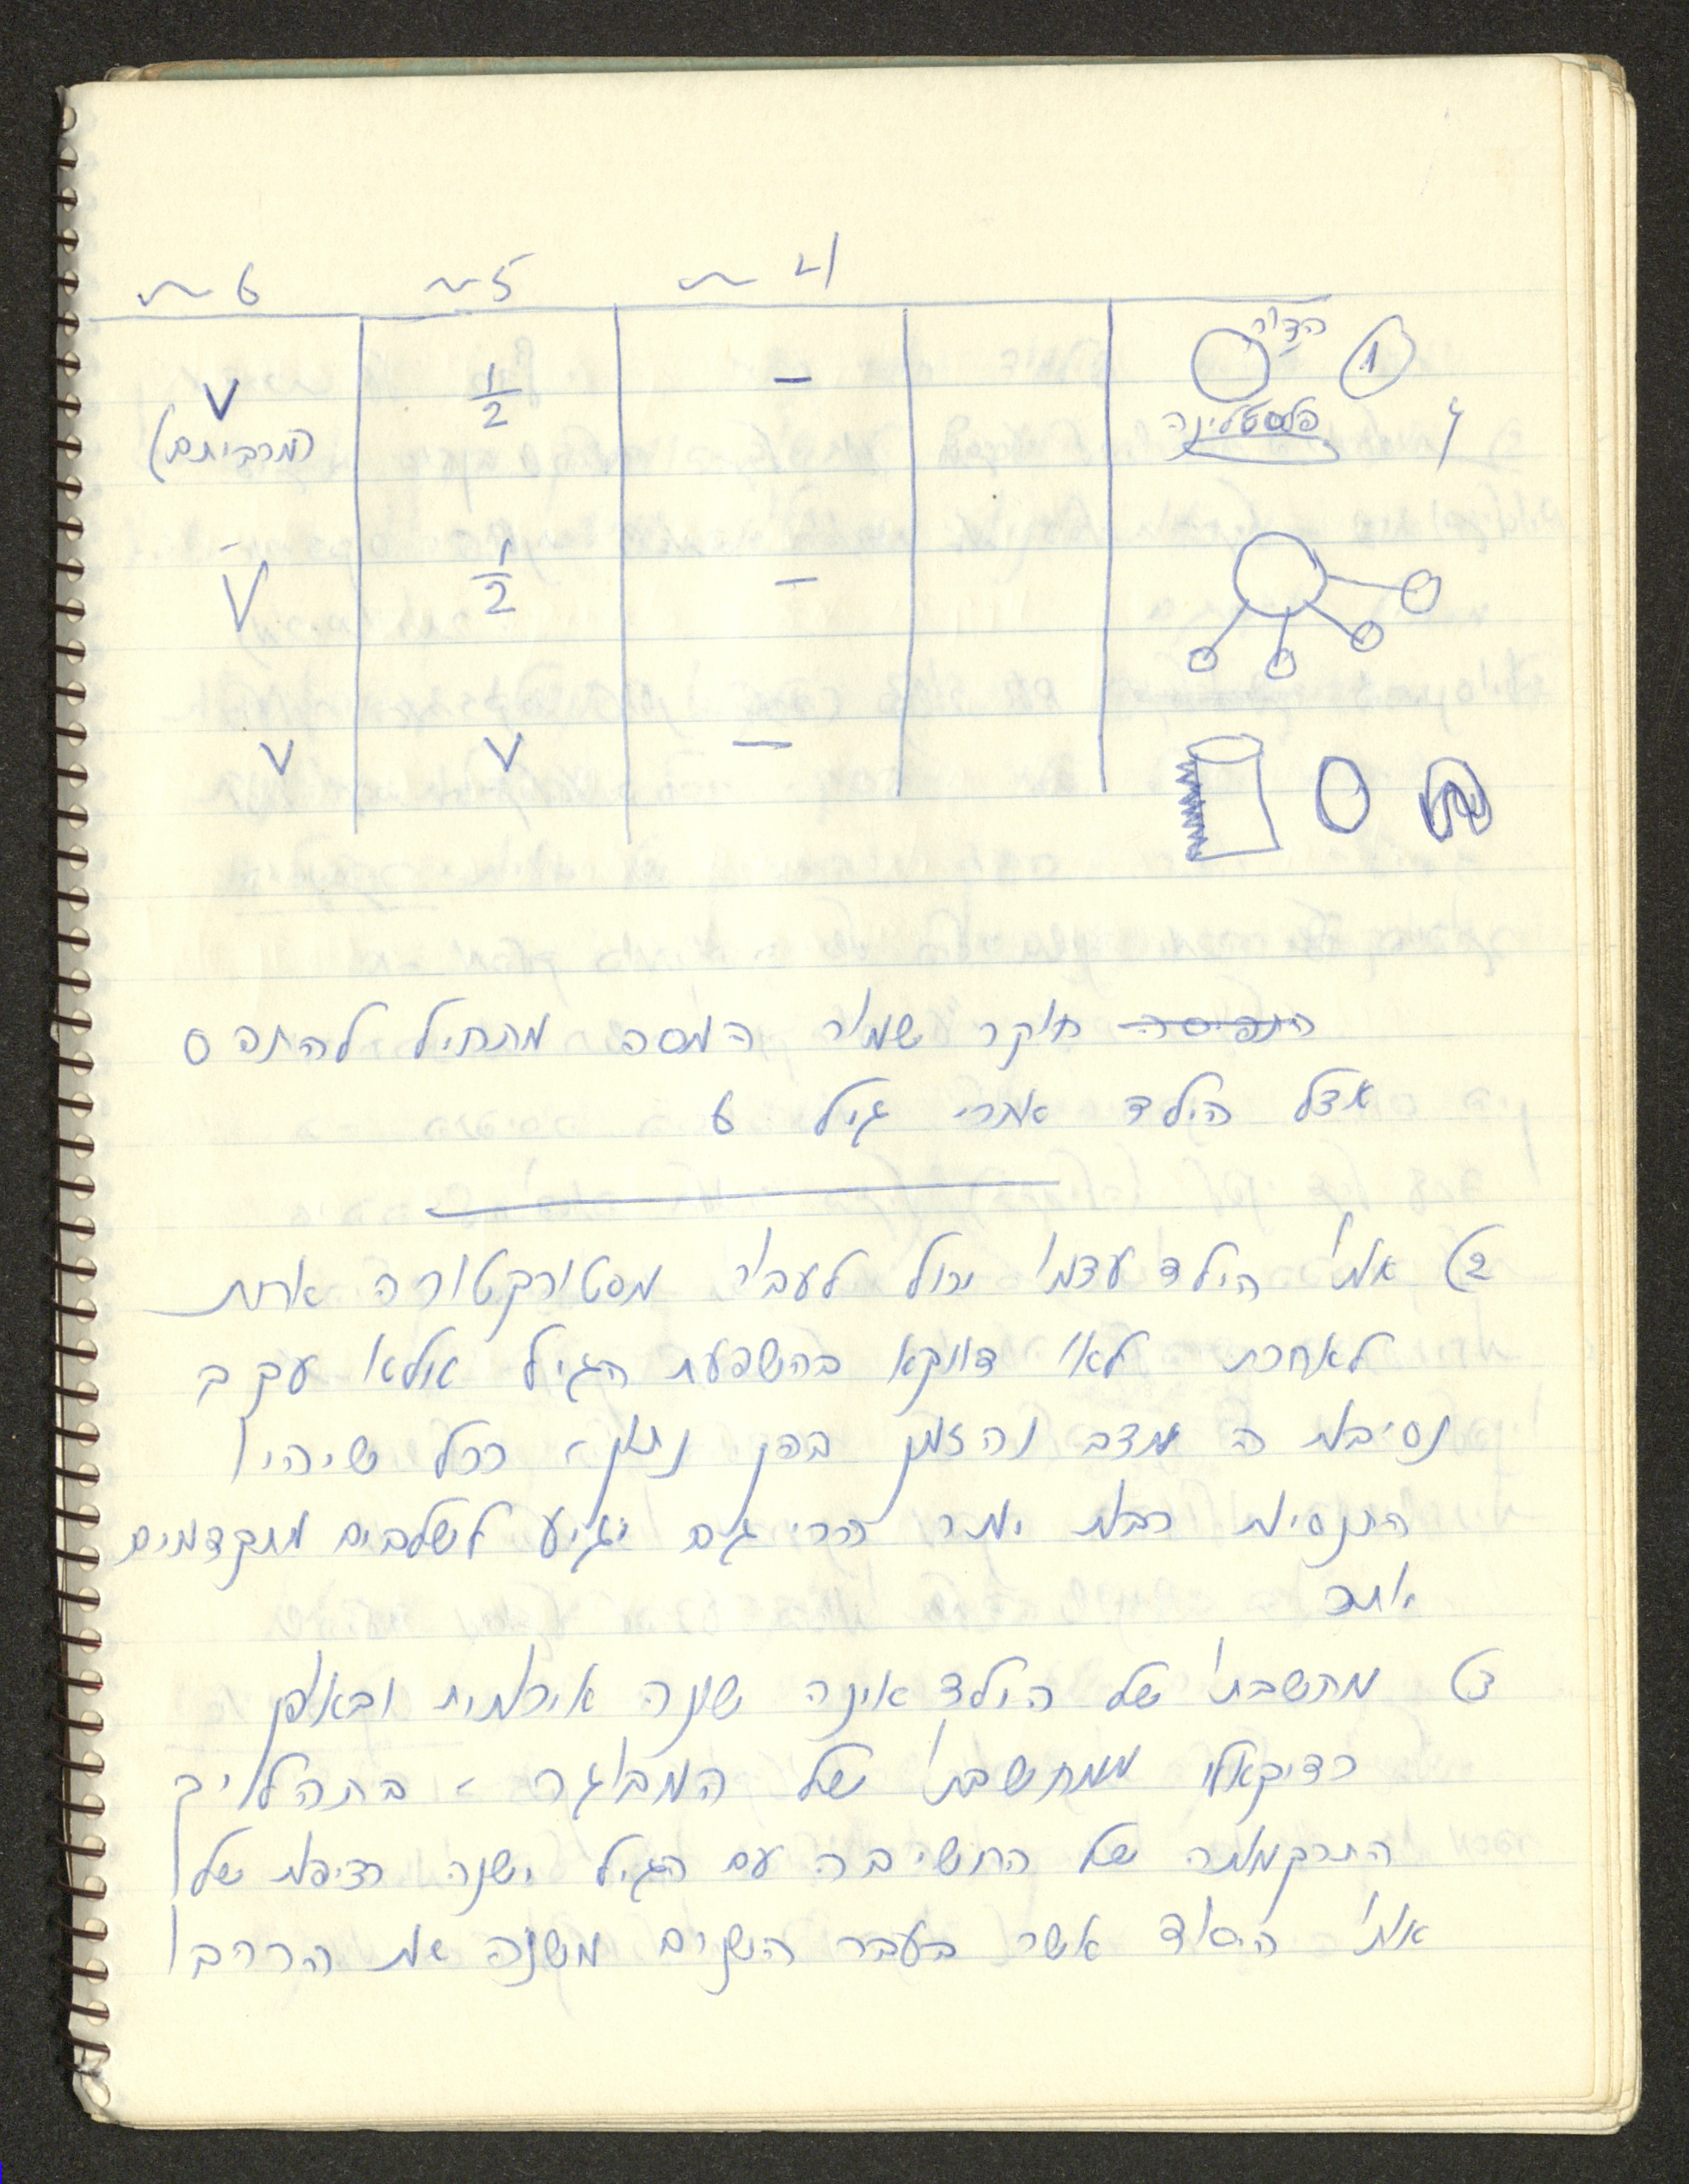 4 ~ 5 ~ 6 ~
1 הציור
פלסטלינה
— 1/2 V
(מרביתם)
— 1/2 V
— V V
התפיסה חוקר שמור המסה מתחיל להתפס
אצל הילד אחרי גיל 6
2) אותו הילד עצמו יכול לעבור מסטורקטורה אחת
לאחרת לאו דווקא בהשפעת הגיל אולא עקב
נסיבות ה מצב והזמן בהן נתון. ככל שיהיו
התנסות רבות יותר הרי גם יגיע לשלבים מתקדמים
יותר
3) מחשבתו של הילד אינה שונה איכותית ובאופן
רדיקאלי ממחשבתו של המבוגר. בתהליך
התרקמותה של החשיבה עם הגיל ישנה רציפות של
אותו היסוד אשר בעבר השנים משנה את הרכבו